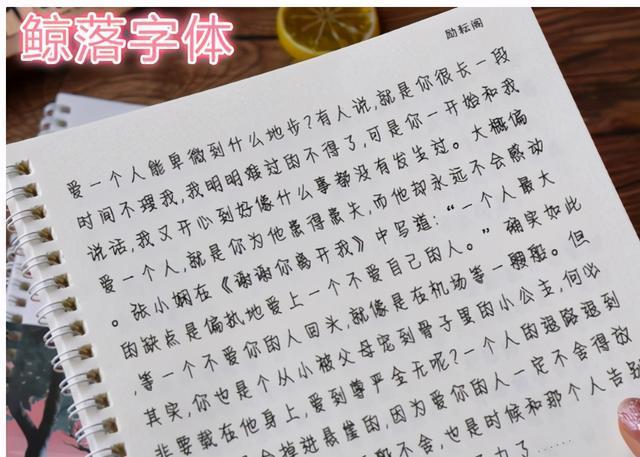 鲸落字体
励耘阁
爱一个人能卑微到什么地步？有人说，就是你很长一段
时间不理我，我明明难过的不得了，可是你一开始和我
说话，我又开心到好像什么事都没有发生过。大概偏
爱一个人，就是你为他患得患失，而他却永远不会感动
。张小娴在《谢谢你离开我》中写道：“一个人最大
的缺点是偏执地爱上一个不爱自己的人。”确实如此
，等一个不爱你的人回头，就像是在机场等一艘船。但
其实，你也是个从小被父母宠到骨子里的小公主，何必
非要载在他身上，爱到尊严全无呢？一个人的退路退到
会掉进悬崖的，因为爱你的人一定不会得放
不舍，也是时候和那个人告别
了……